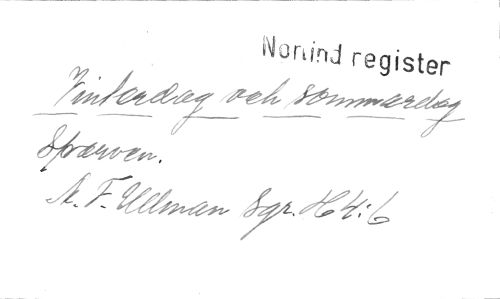 Nonind register
Vinterdag och sommardag
Sparven.
A. F. Ullman Sgr. H 4:6